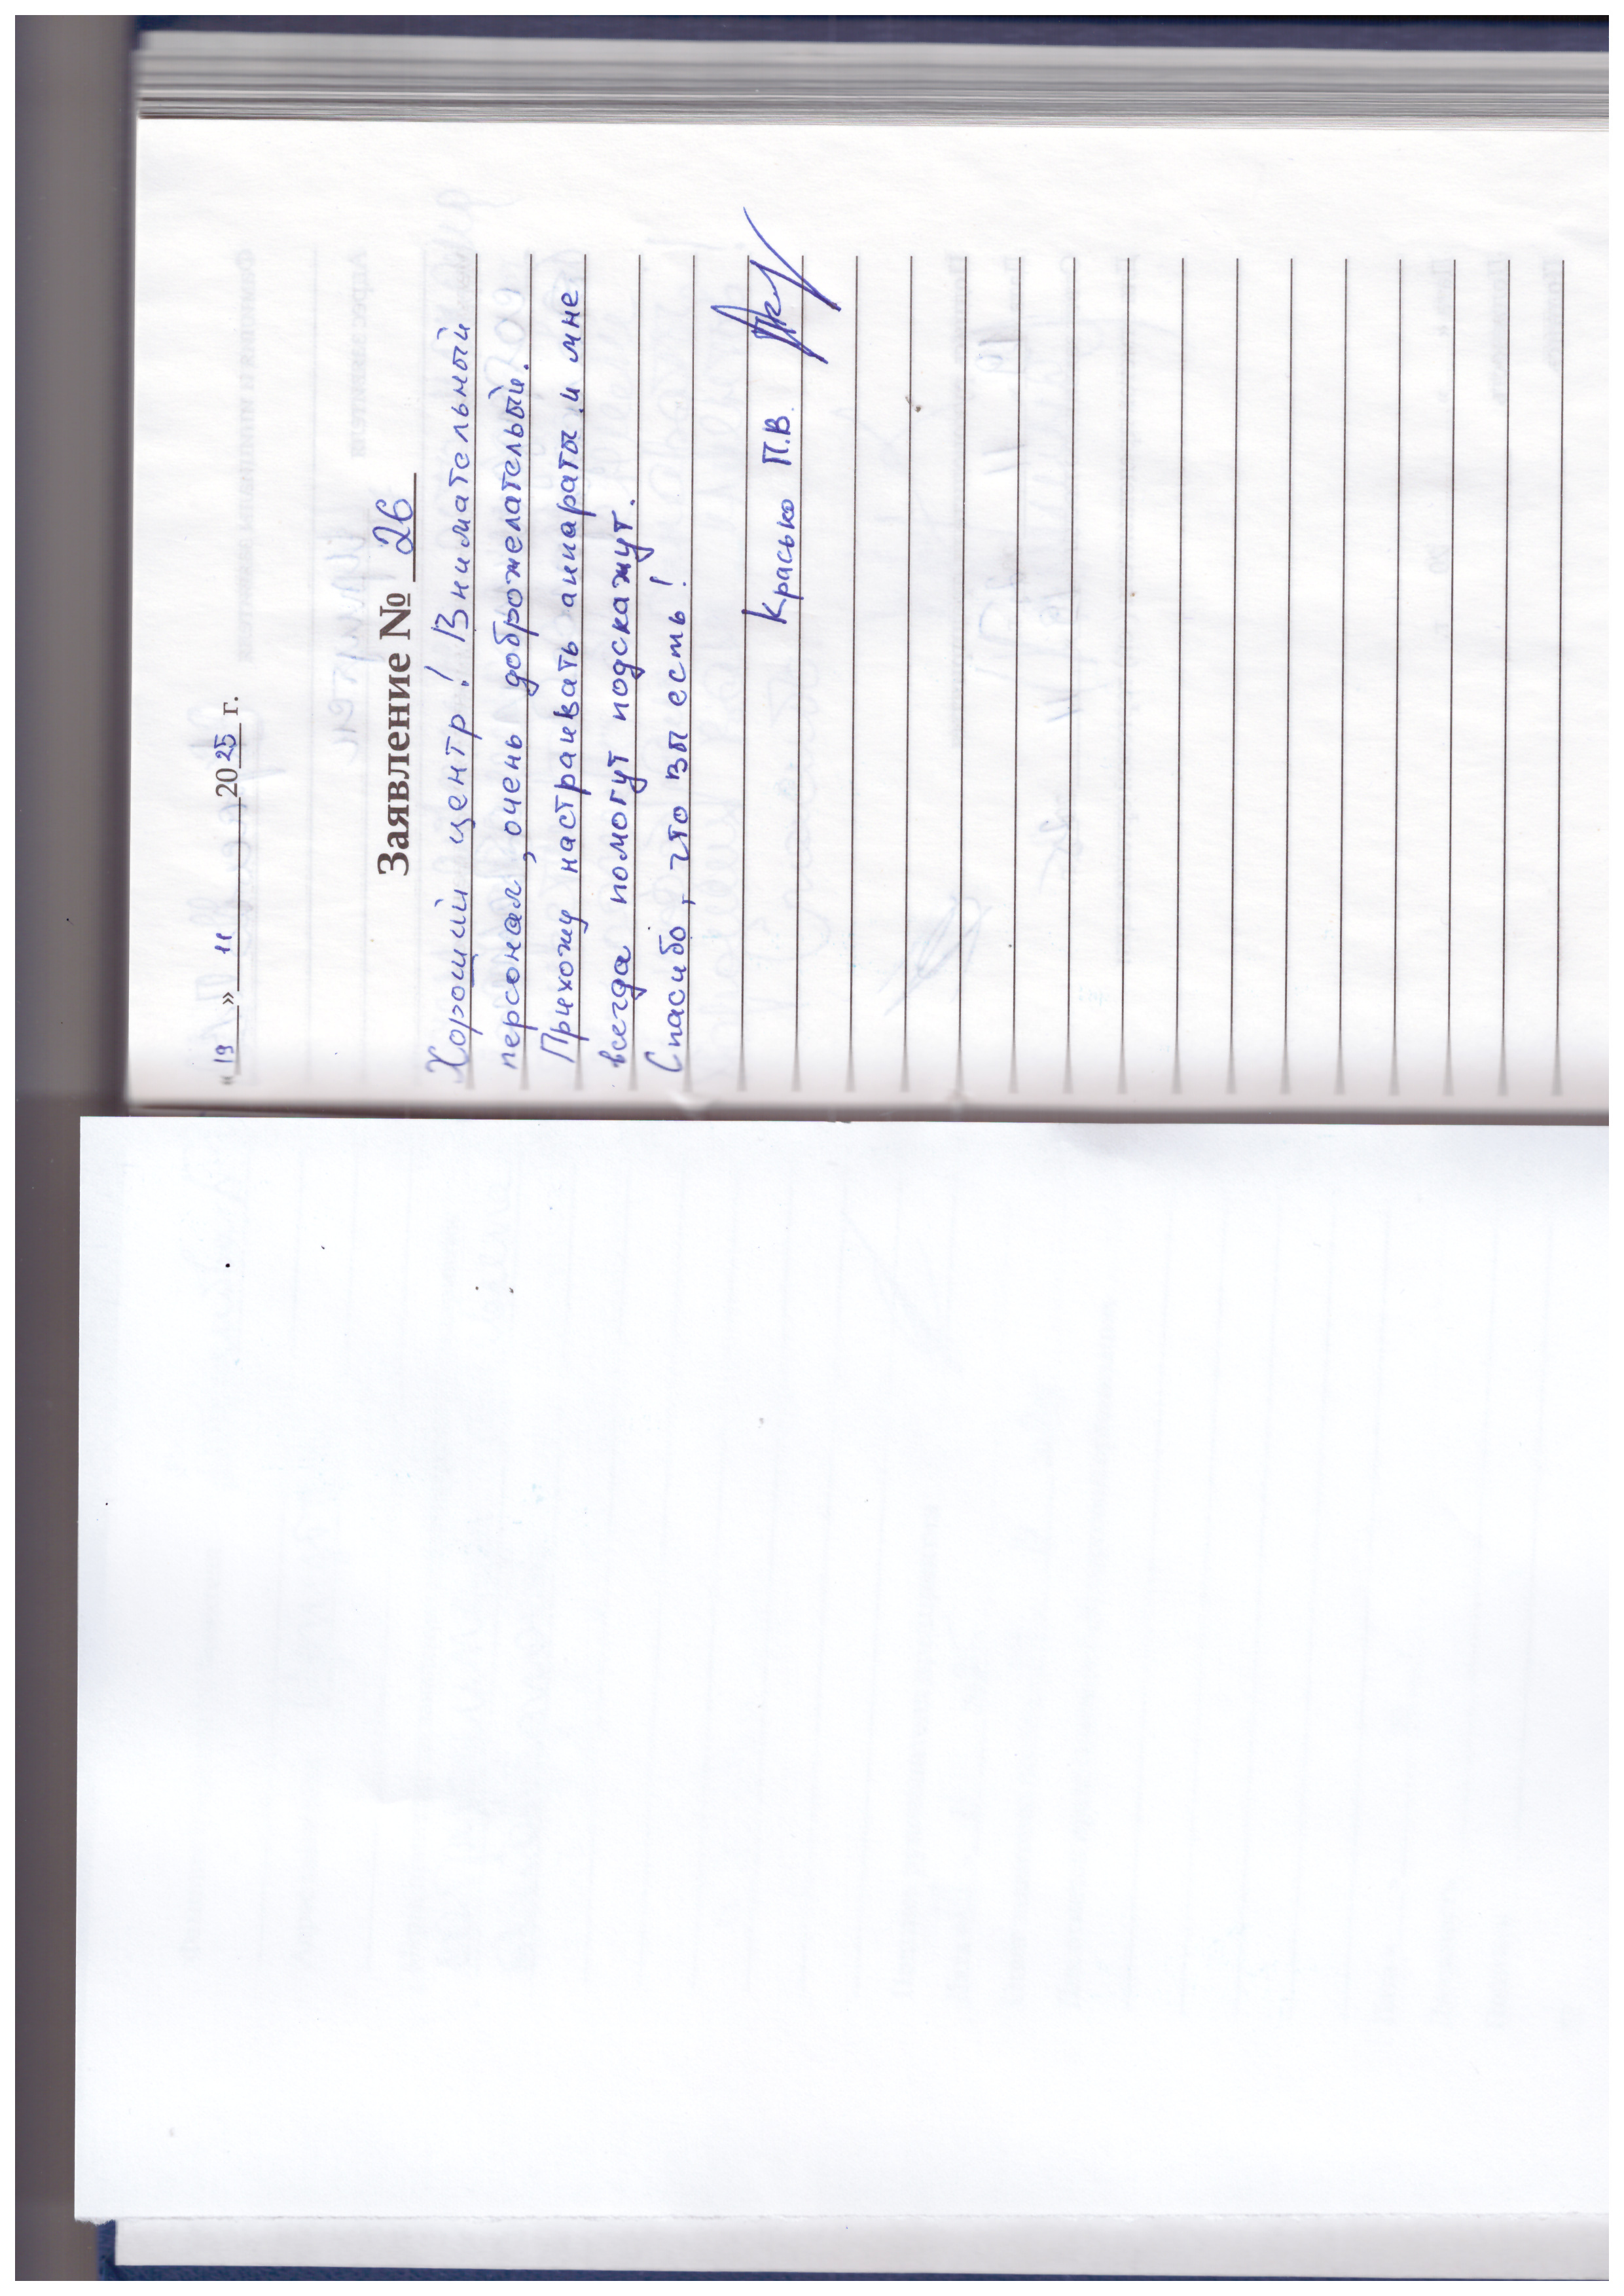 «19» 11 2025 г.
Заявление № 26
Хороший центр! Внимательный
персонал, очень доброжелательый.
Прихожу настраивать аппараты и мне
всегда помогут подскажут.
Спасибо, что вы есть!
Красько П.В.